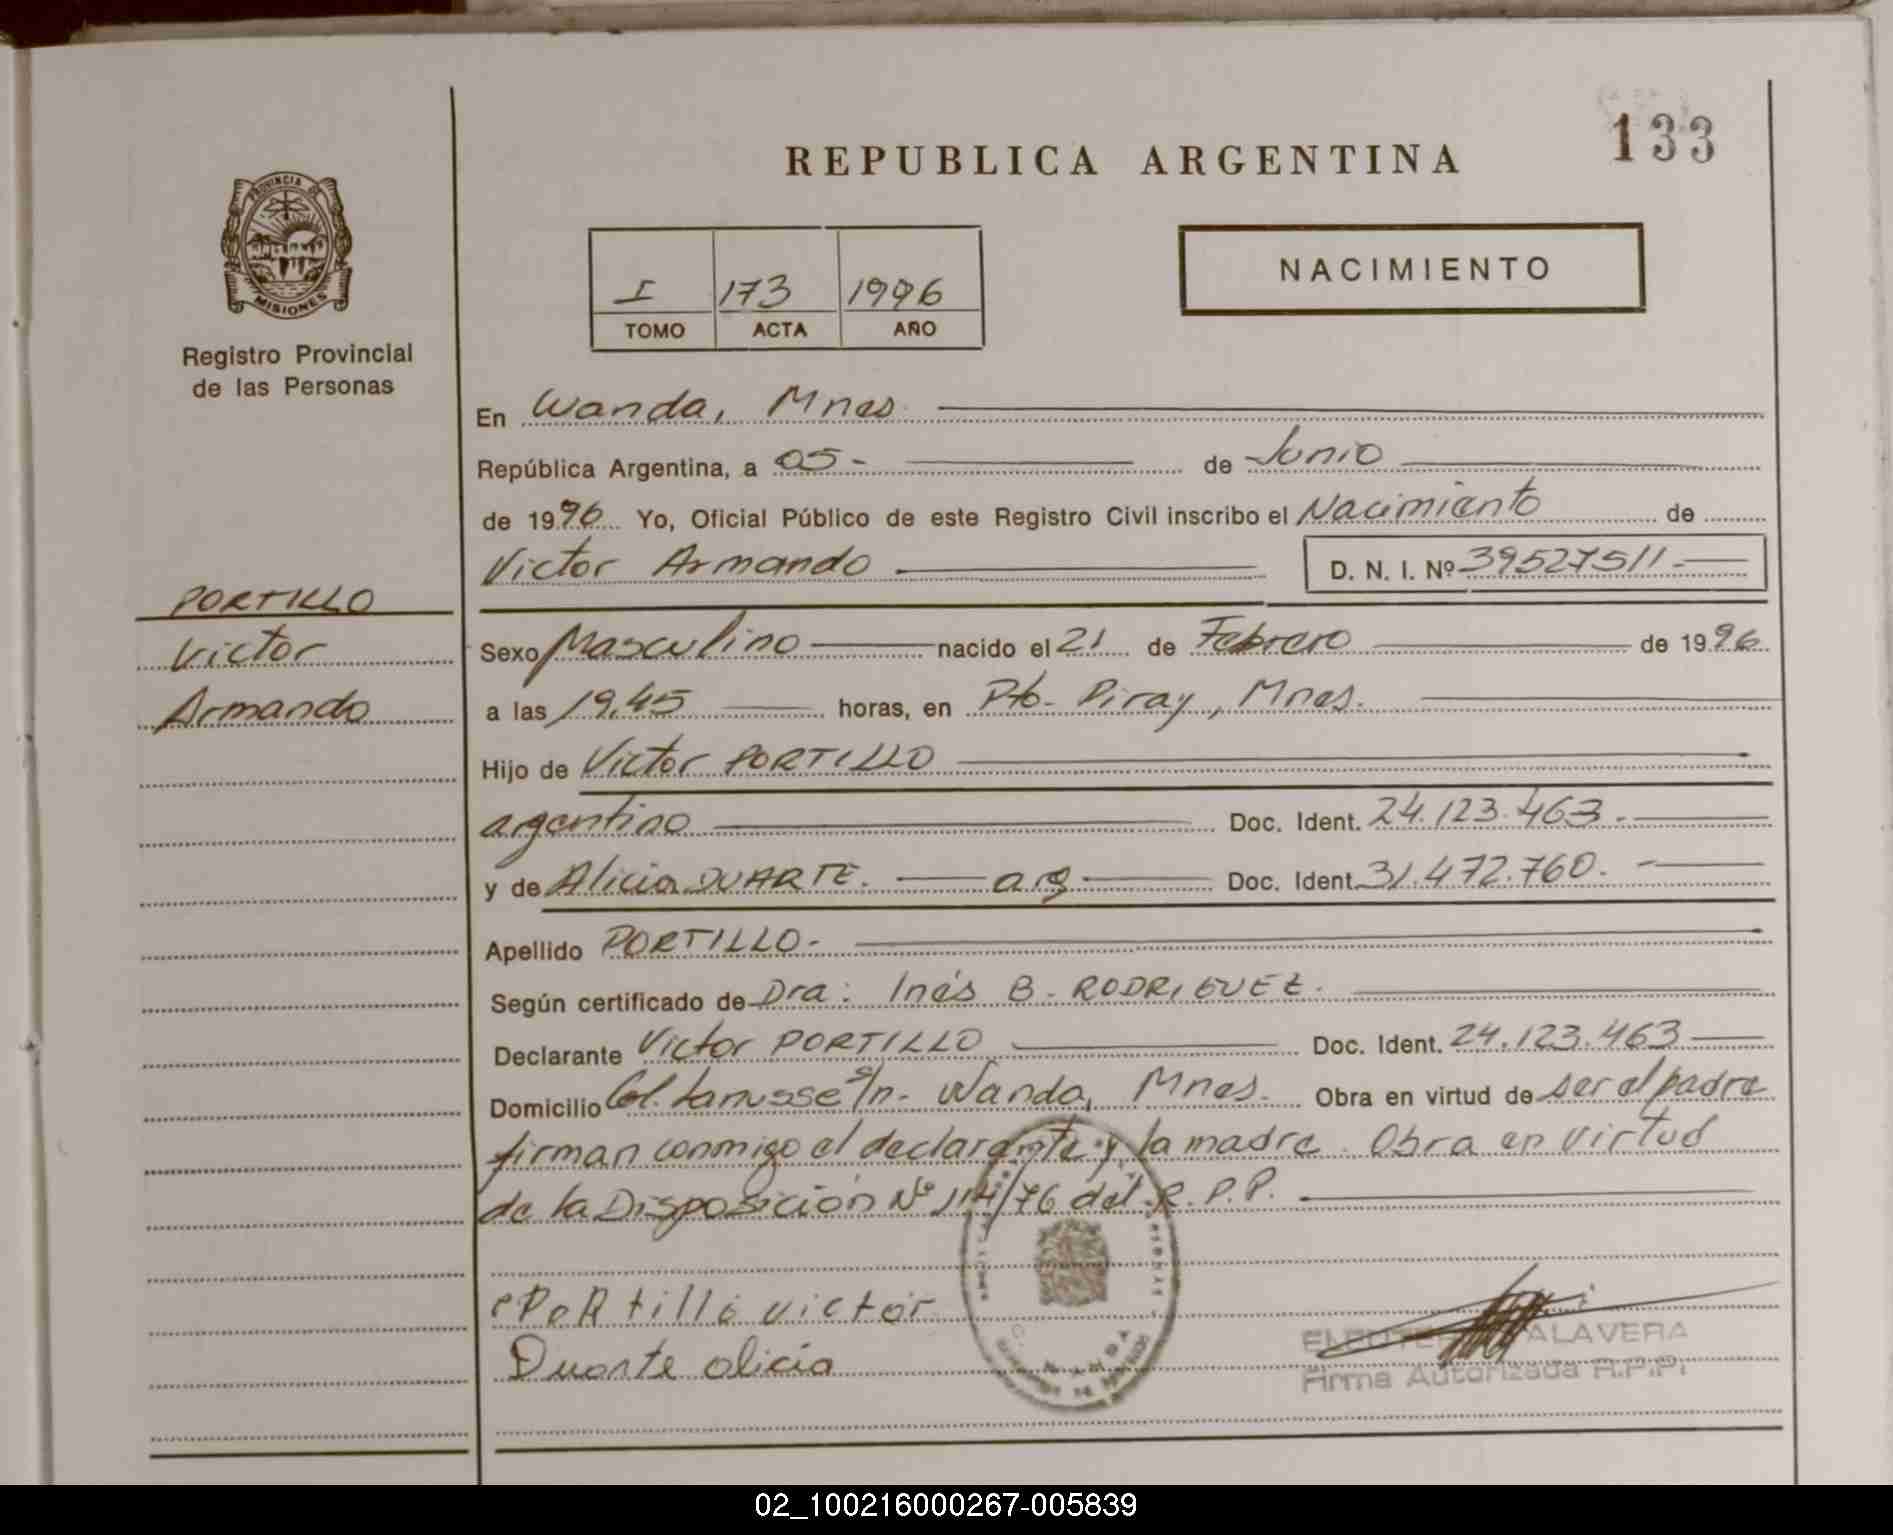 133
REPUBLICA ARGENTINA
PROVINCIA DE
MISIONES
Registro Provincial
de las Personas
I 173 1996
TOMO ACTA AÑO
NACIMIENTO
En Wanda, Mnes.
República Argentina, a 05- de Junio
de 1996 Yo, Oficial Público de este Registro Civil inscribo el Nacimiento de
Victor Armando D. N. I. Nº 39527511.-
PORTILLO
Victor
Armando
Sexo Masculino nacido el 21 de Febrero de 1996
a las 19,45 horas, en Pto. Piray, Mnes.
Hijo de Victor PORTILLO
argentino Doc. Ident. 24.123.463.-
y de Alicia DUARTE. arg Doc. Ident. 31.472.760.-
Apellido PORTILLO.-
Según certificado de Dra: Inés B. RODRIGUEZ.
Declarante Victor PORTILLO Doc. Ident. 24.123.463
Domicilio Col. Lanusse s/n. Wanda, Mnes. Obra en virtud de ser el padre
firman conmigo el declarante y la madre. Obra en virtud
de la Disposición Nº 114/76 del R.P.P.
PoRtillo victor
Duarte alicia
ALAVERA
Firma Autorizada R.P.P.
02_100216000267-005839